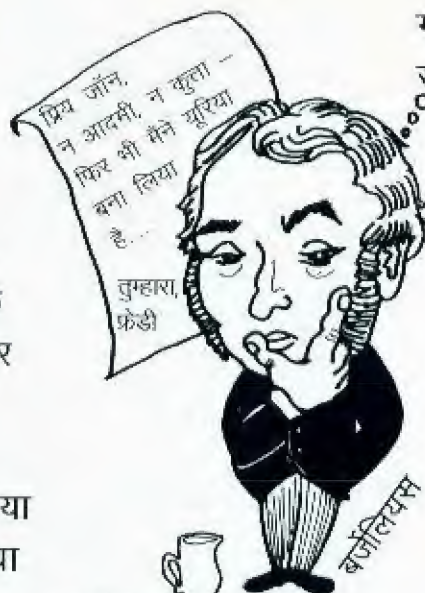 प्रिय जॉन,
न आदमी, न कुत्ता –
फिर भी मैंने यूरिया
बना लिया
है...
तुम्हारा,
फ्रेडी
र
या
बर्जेलियस